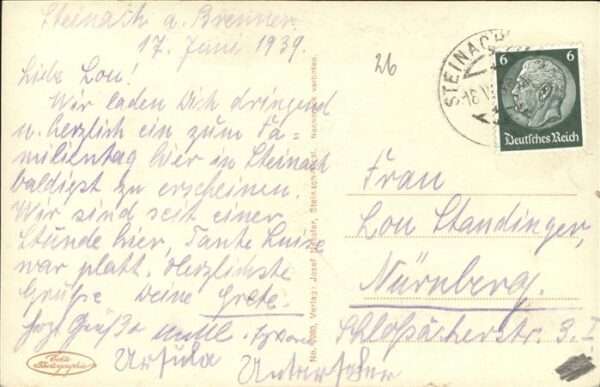 Steinach a. Brenner
17. Juni 1939.
Liebe Lou!
Wir laden Dich dringend
u. herzlich ein zum Fa=
milientag hier in Steinach
baldigst zu erscheinen.
Wir sind seit einer
Stunde hier, Tante Luise
war platt. Herzlichste
Grüße Deine Grete.
Herzl. Grüße
Ursula
26
STEINACH
6 6
Deutsches Reich
Frau
Lou Standinger,
Nürnberg.
Schloßäckerstr. 3. I
Echte
Photographie